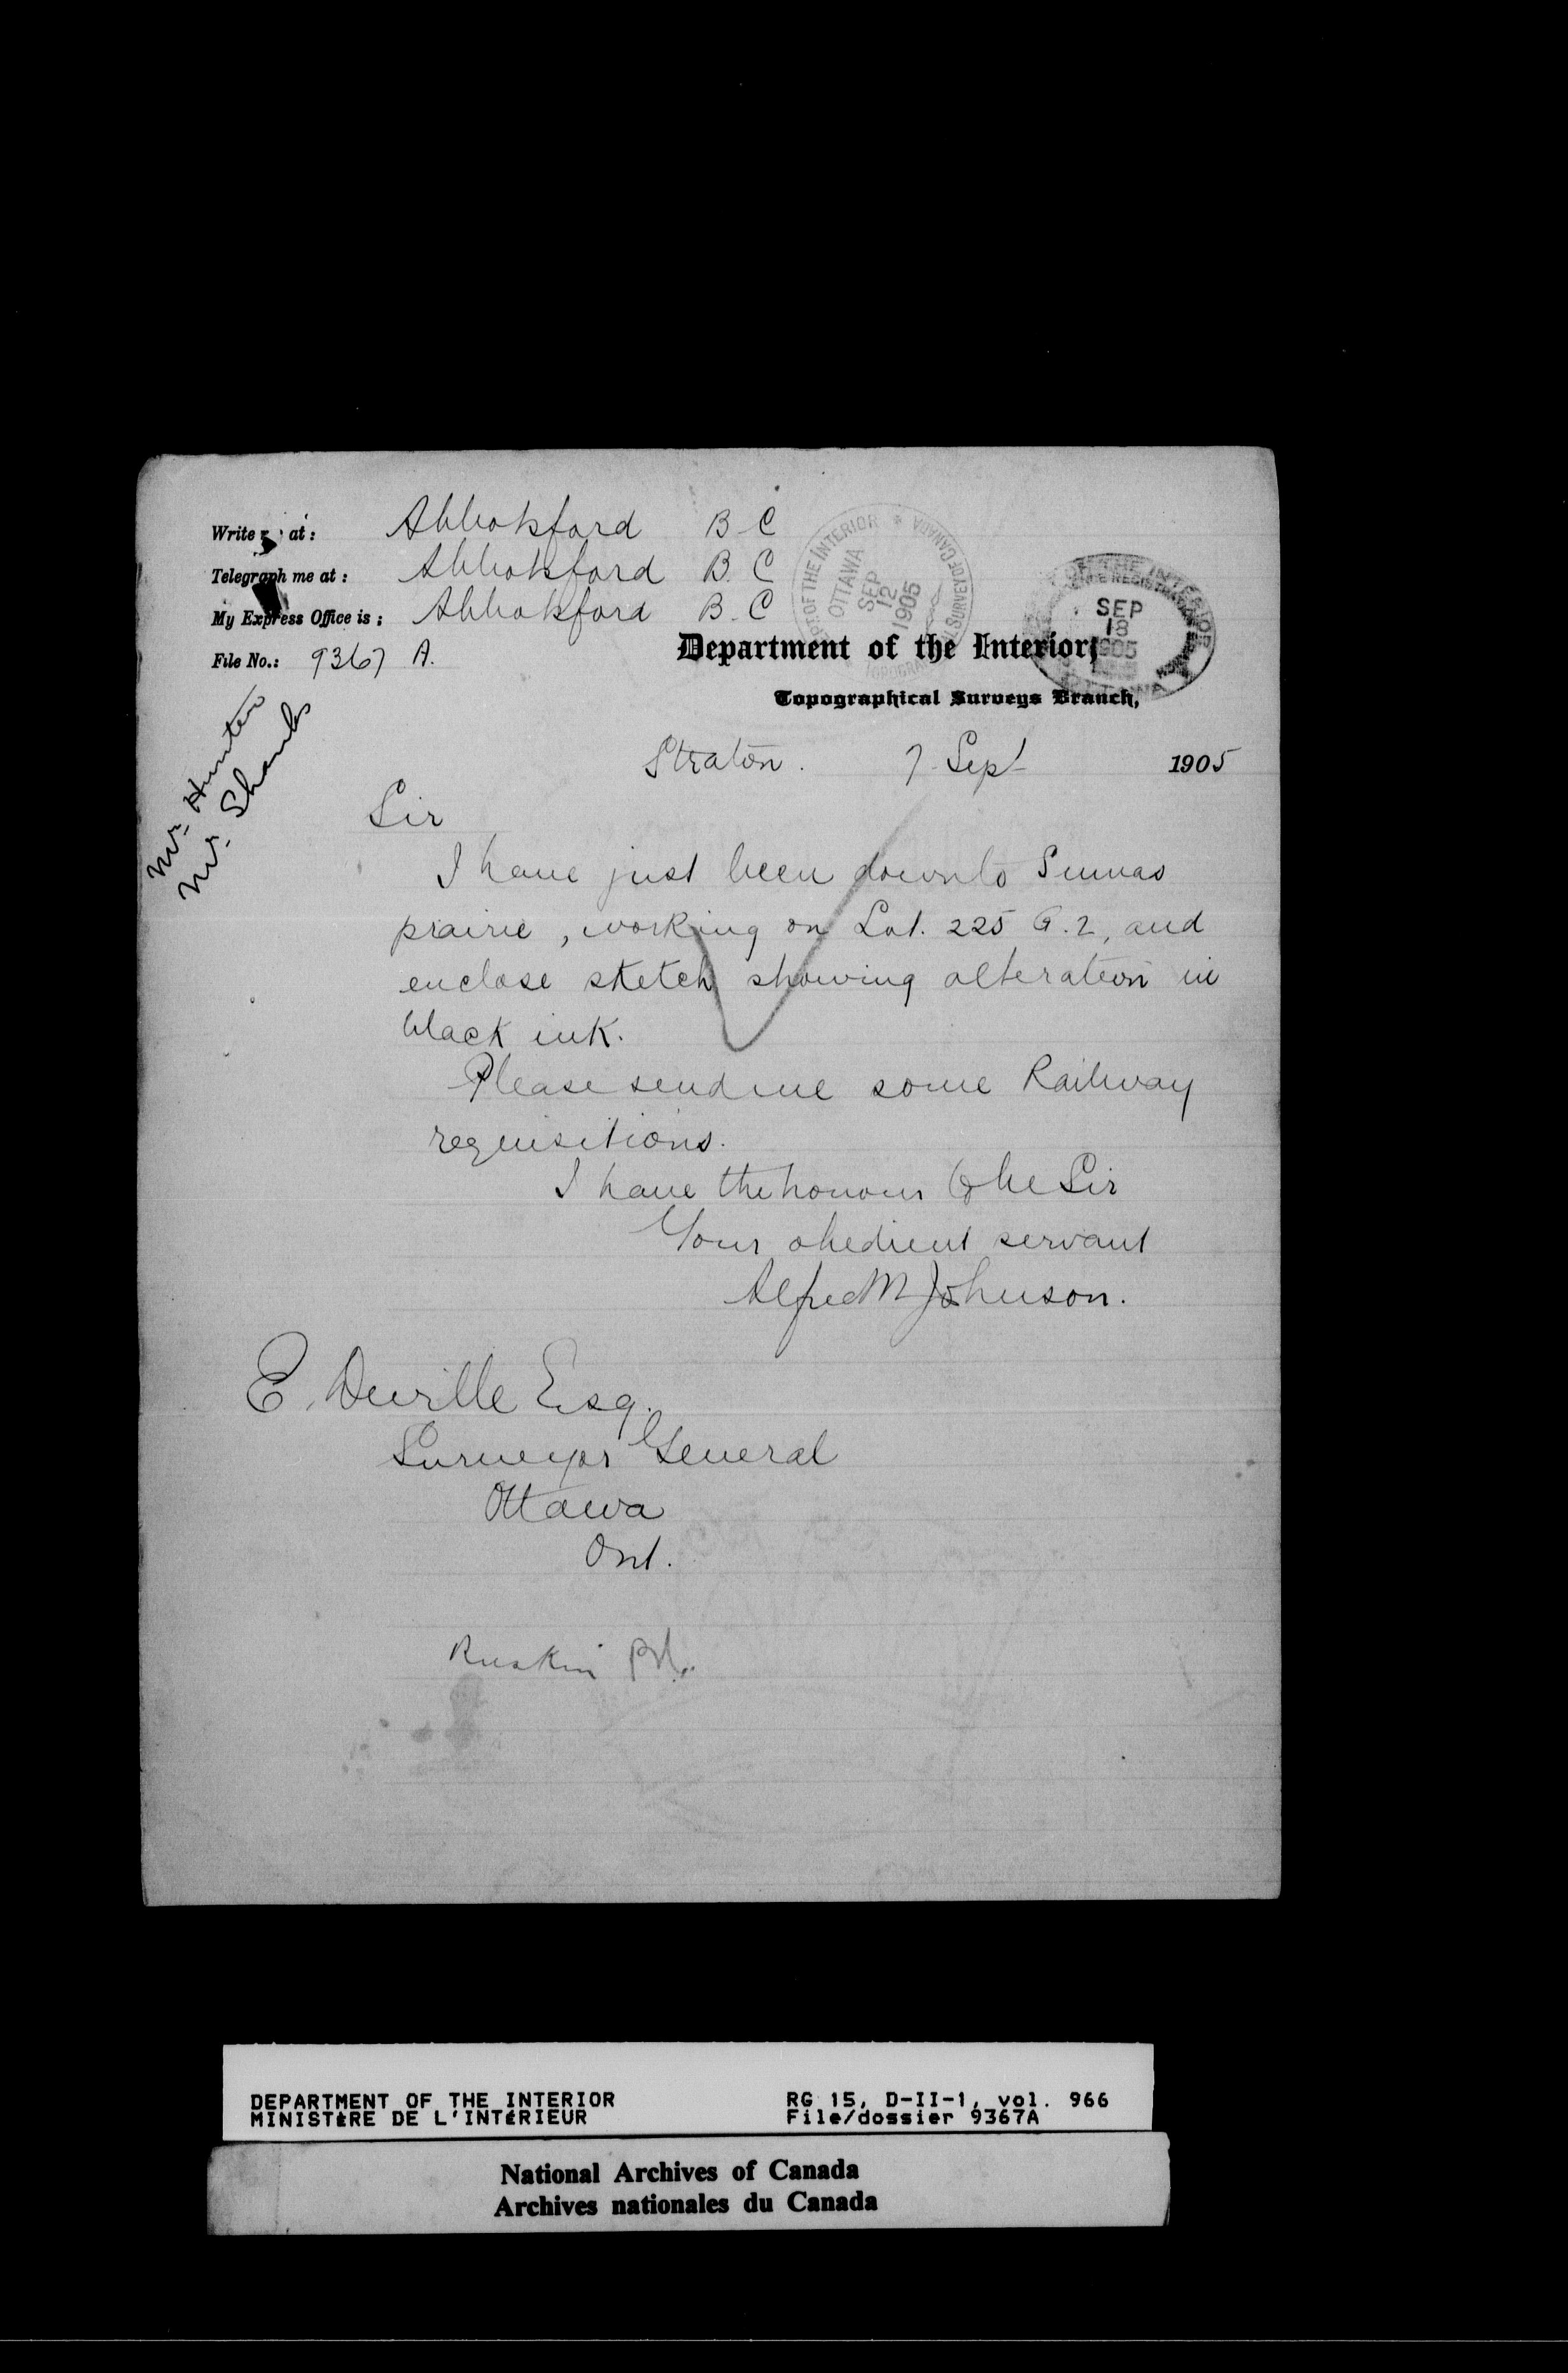 Write at: Abbotsford B C
Telegraph me at: Abbotsford B. C
My Express Office is: Abbotsford B. C
File No.: 9367 A.
DEPT OF THE INTERIOR * TOPOGRAPHICAL SURVEY OF CANADA
OTTAWA
SEP
12
1905
OF THE INTERIOR
SEP
18
1905
Department of the Interior,
Topographical Surveys Branch,
Mr. Hunter
Mr. Shanks
Straton. 7 Sept 1905
Sir
I have just been down to Sumas
prairie, working on Lot. 225 G. 2, and
enclose sketch showing alteration in
black ink.
Please send me some Railway
requisitions.
I have the honour to be Sir
Your obedient servant
Alfred M Johnson.
E. Deville Esq.
Surveyor General
Ottawa
Ont.
Ruskin
DEPARTMENT OF THE INTERIOR RG 15, D-II-1, vol. 966
MINISTÈRE DE L'INTÉRIEUR File/dossier 9367A
National Archives of Canada
Archives nationales du Canada